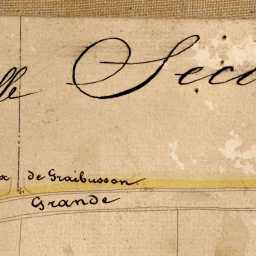 lle Sec
x de Graibusson
Grande